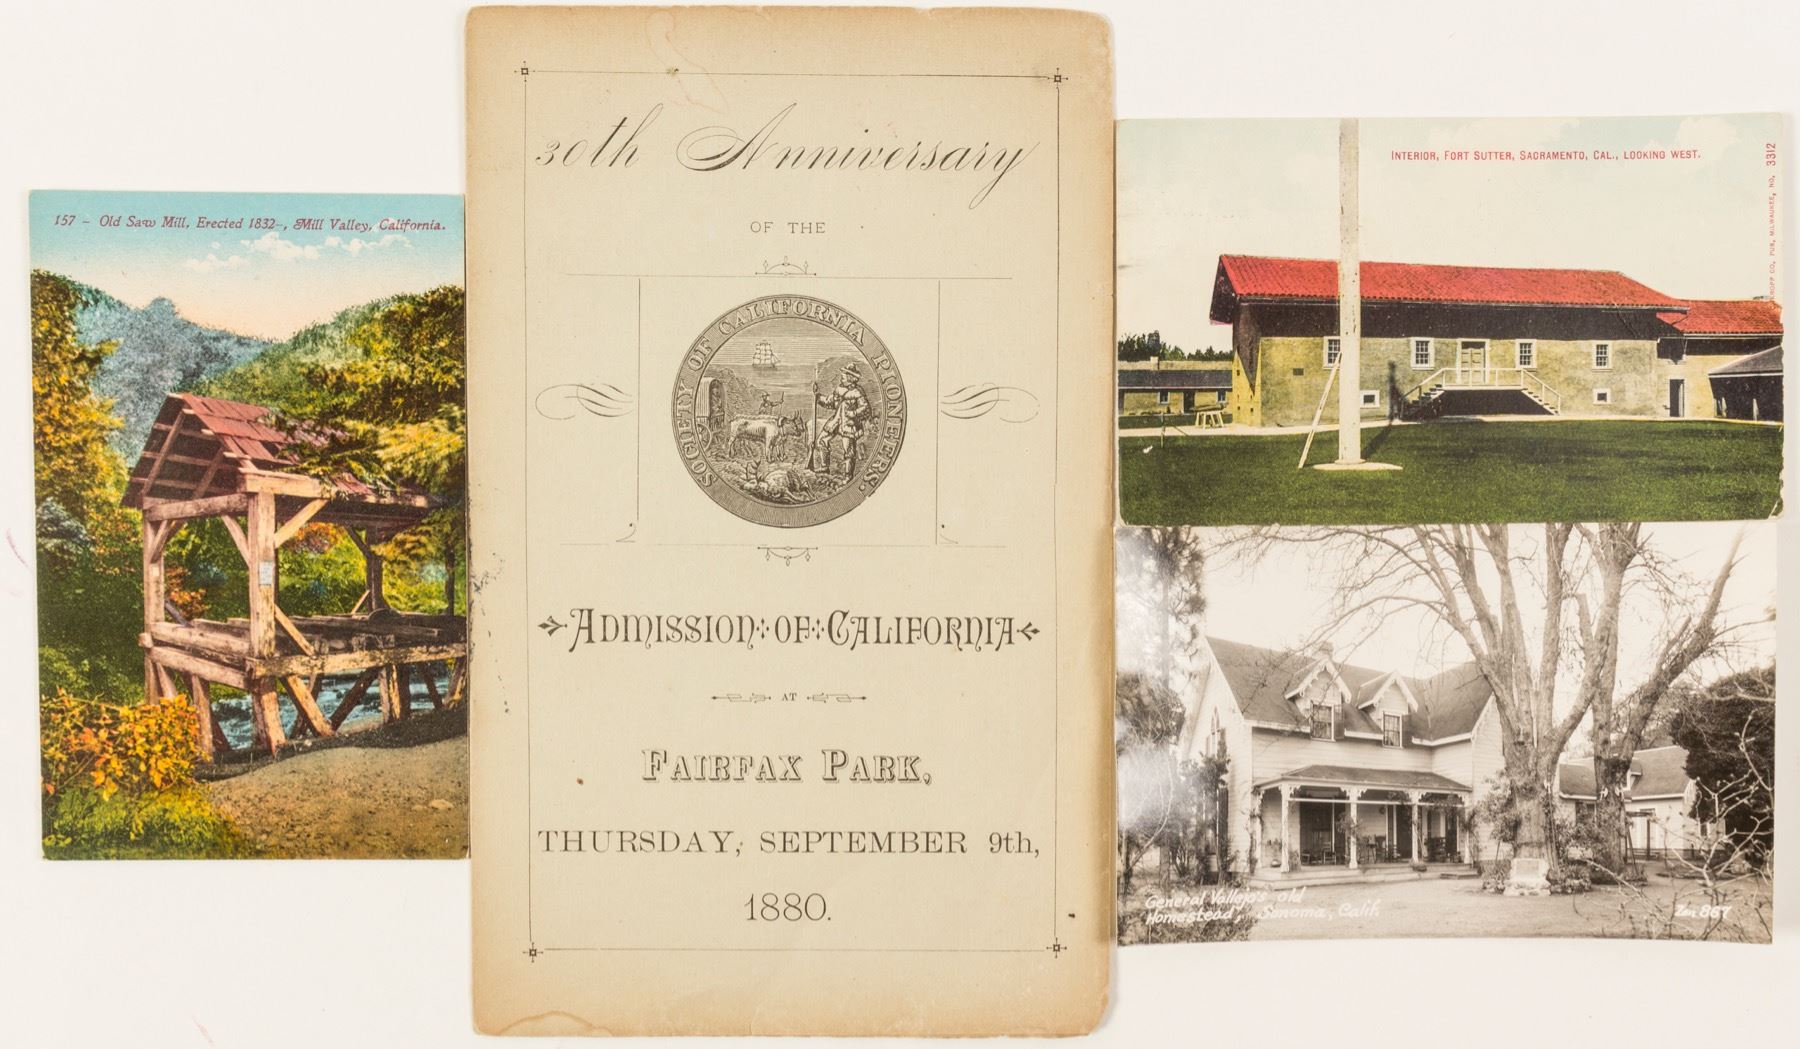 157 - Old Saw Mill, Erected 1832-, Mill Valley, California.
30th Anniversary
OF THE
SOCIETY OF CALIFORNIA PIONEERS.
ADMISSION OF CALIFORNIA
AT
FAIRFAX PARK,
THURSDAY, SEPTEMBER 9th,
1880.
INTERIOR, FORT SUTTER, SACRAMENTO, CAL., LOOKING WEST.
KROPP CO. PUB. MILWAUKEE, NO. 3312
General Vallejo's old
Homestead, Sonoma, Calif.
Zan 867